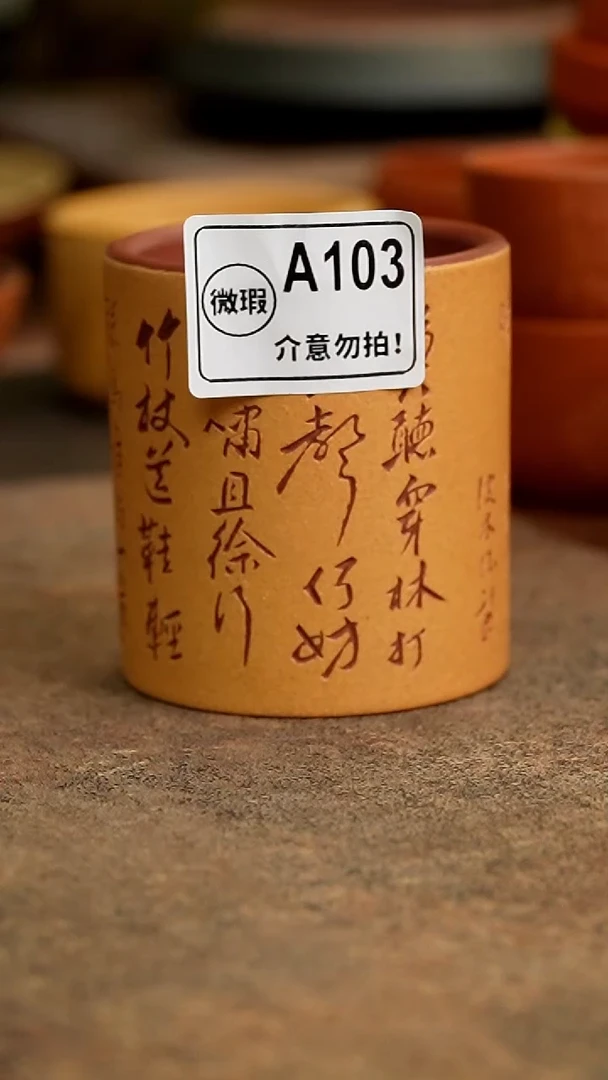 A103
微瑕
介意勿拍！
聽穿林打
聲何妨
嘯且徐行
竹杖芒鞋輕